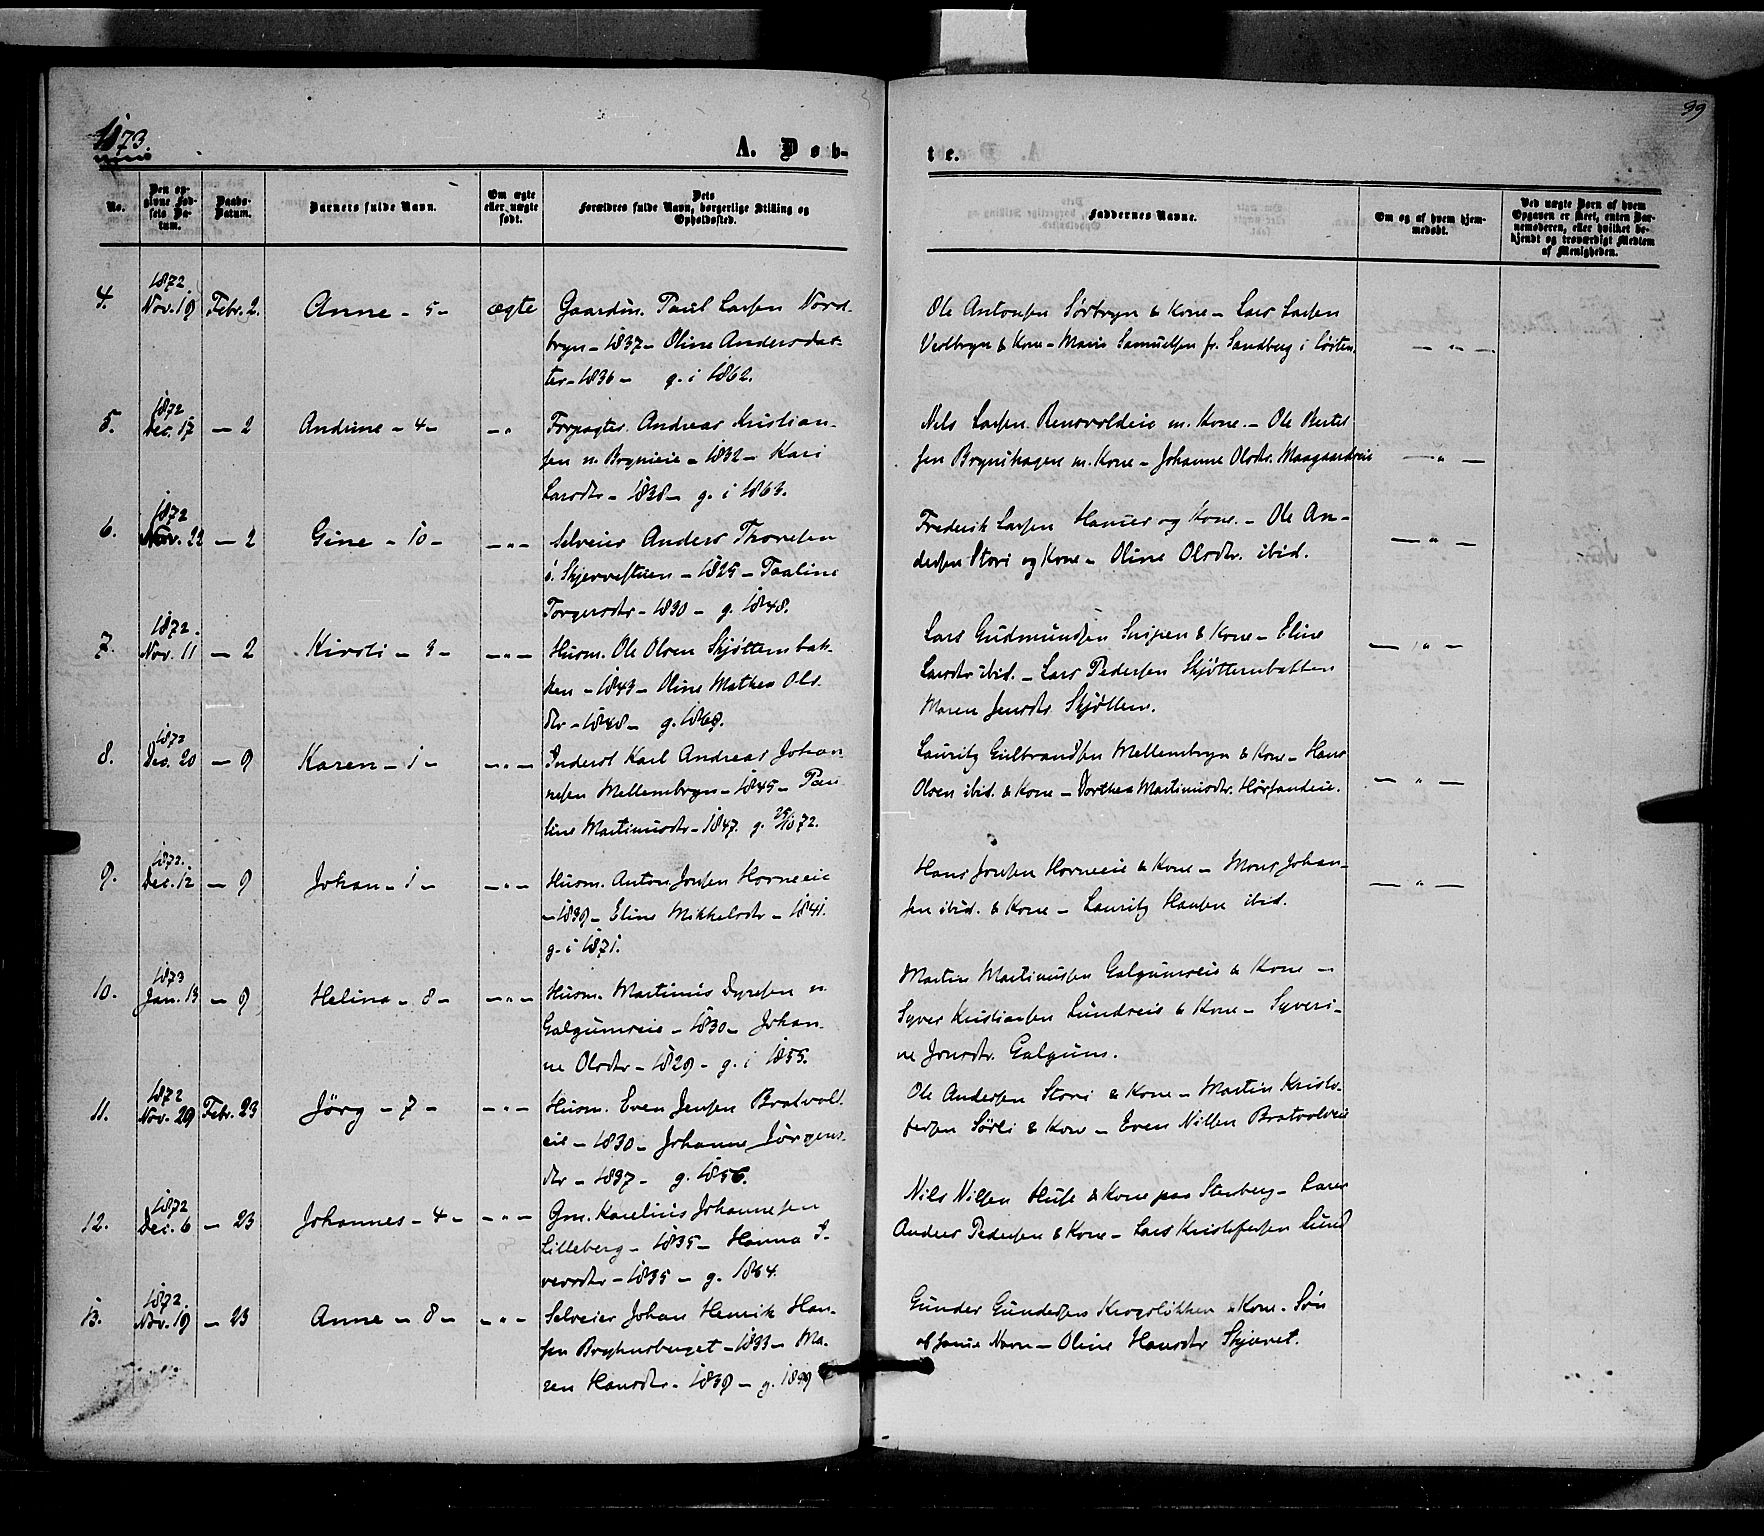 99
1873.
A. Døb-
te.
No.
Den op-
givne Fød-
sels Da-
tum.
Daabs-
Datum.
Barnets fulde Navn.
Om ægte
eller uægte
født.
Dets
Forældres fulde Navn, borgerlige Stilling og
Opholdssted.
Faddernes Navne.
Om og af hvem hjem-
medøbt.
Ved uægte Børn af hvem
Opgaven er skeet, enten Bar-
nemoderen, eller hvilket be-
kjendt og troværdigt Medlem
af Menigheden.
1872.
4. Nov. 19 Febr. 2. Anne - 5 - ægte Gaardm. Paul Larsen Nord-
bryn - 1837 - Oline Andersdat-
ter - 1836 - g. i 1862.
Ole Antonsen Sørbryn & Kone - Lars Larsen
Vestbryn & Kone - Marie Samuelsen fr. Sandberg i Løiten. - " -
1872
5. Dec. 17 - 2 Andrine - 4 - - " Forpagter. Andreas Kristian-
sen n. Brynieie - 1832 - Kari
Larsdtr - 1838 - g. i 1863.
Nils Larsen m. Kone - Ole Bertel
sen Brynshagen m. Kone - Johanne Olsdtr. Maagaardseie - " -
1872
6. Nov. 22 - 2 Gine - 10 - - " - Selveier Anders Thoresen
ö. Skjervestuen - 1825 -
Torgersdtr - 1830 - g. 1848.
Frederik Larsen og Kone - Ole An-
dersen Stori og Kone - Oline Olsdtr. ibid. - " -
1872.
7. Nov. 11 - 2 Kirsti - 3 - - " - Husm. Ole Olsen Skjøttembak-
ken - 1843 - Oline Mathea Ols-
dtr - 1848 - g. 1869.
Lars Gudmundsen Snipen & Kone - Eline
Larsdtr ibid. - Lars Pedersen Skjøttembakken
Maren Jensdtr Skjøtten. - " -
1872
8. Dec. 20 - 9 Karen - 1 - - " - Inderst Karl Andreas Johan
nesen Mellembryn - 1845 - Pau-
line Martinusdtr - 1847. g. 29/10 72.
Lauritz Gulbrandsen Mellembryn & Kone - Hans
Olsen ibid. & Kone - Dorthea Martinusdtr. Hørsandeie. - " -
1872.
9. Dec. 12 - 9 Johan - 1 - - " - Husm. Anton Jonsen Horneeie
- 1839 - Eline Mikkelsdtr - 1841.
g. i 1871.
Hans Jonsen Horneeie & Kone - Mons Johan-
sen ibid. & Kone - Lauritz Hansen ibid. - " -
1873
10. Jan. 13 - 9 Helina - 8 - - " - Husm. Martinus Syversen n.
Galgumseie - 1830 - Johan-
ne Olsdtr - 1829 - g. i 1855.
Martin Martinussen Galgumseie & Kone -
Syver Kristiansen Lundseie & Kone - Syveri-
ne Jonsdtr. Galgum.
1872
11. Nov. 29 Febr. 23 Jörg - 7 - - " - Husm. Even Jensen Bratvold
eie - 1830 - Johanne Jörgens-
dtr - 1837 - g. 1856.
Ole Andersen Stori & Kone - Martin Kristo-
fersen Sørli & Kone - Even Nilsen Bratvoldeie
1872
12. Dec. 6 - 23 Johannes - 4 - - " - Gm. Karelius Johannesen
Lilleberg - 1835 - Hanna I-
versdtr - 1835 - g. 1864.
Nils Nilsen & Kone paa Stenberg -
Anders Pedersen & Kone - Lars Kristofersen Lund
1872.
13. Nov. 19 - 23 Anne - 8 - - " - Selveier Johan Henrik Han-
sen Bryhnsberget - 1833 - Ma-
ren Hansdtr. - 1839 - g. 1859
Gunder Gundersen Krogsløkken & Kone - Søn
af samme Navn - Oline Hansdtr Skjæret.